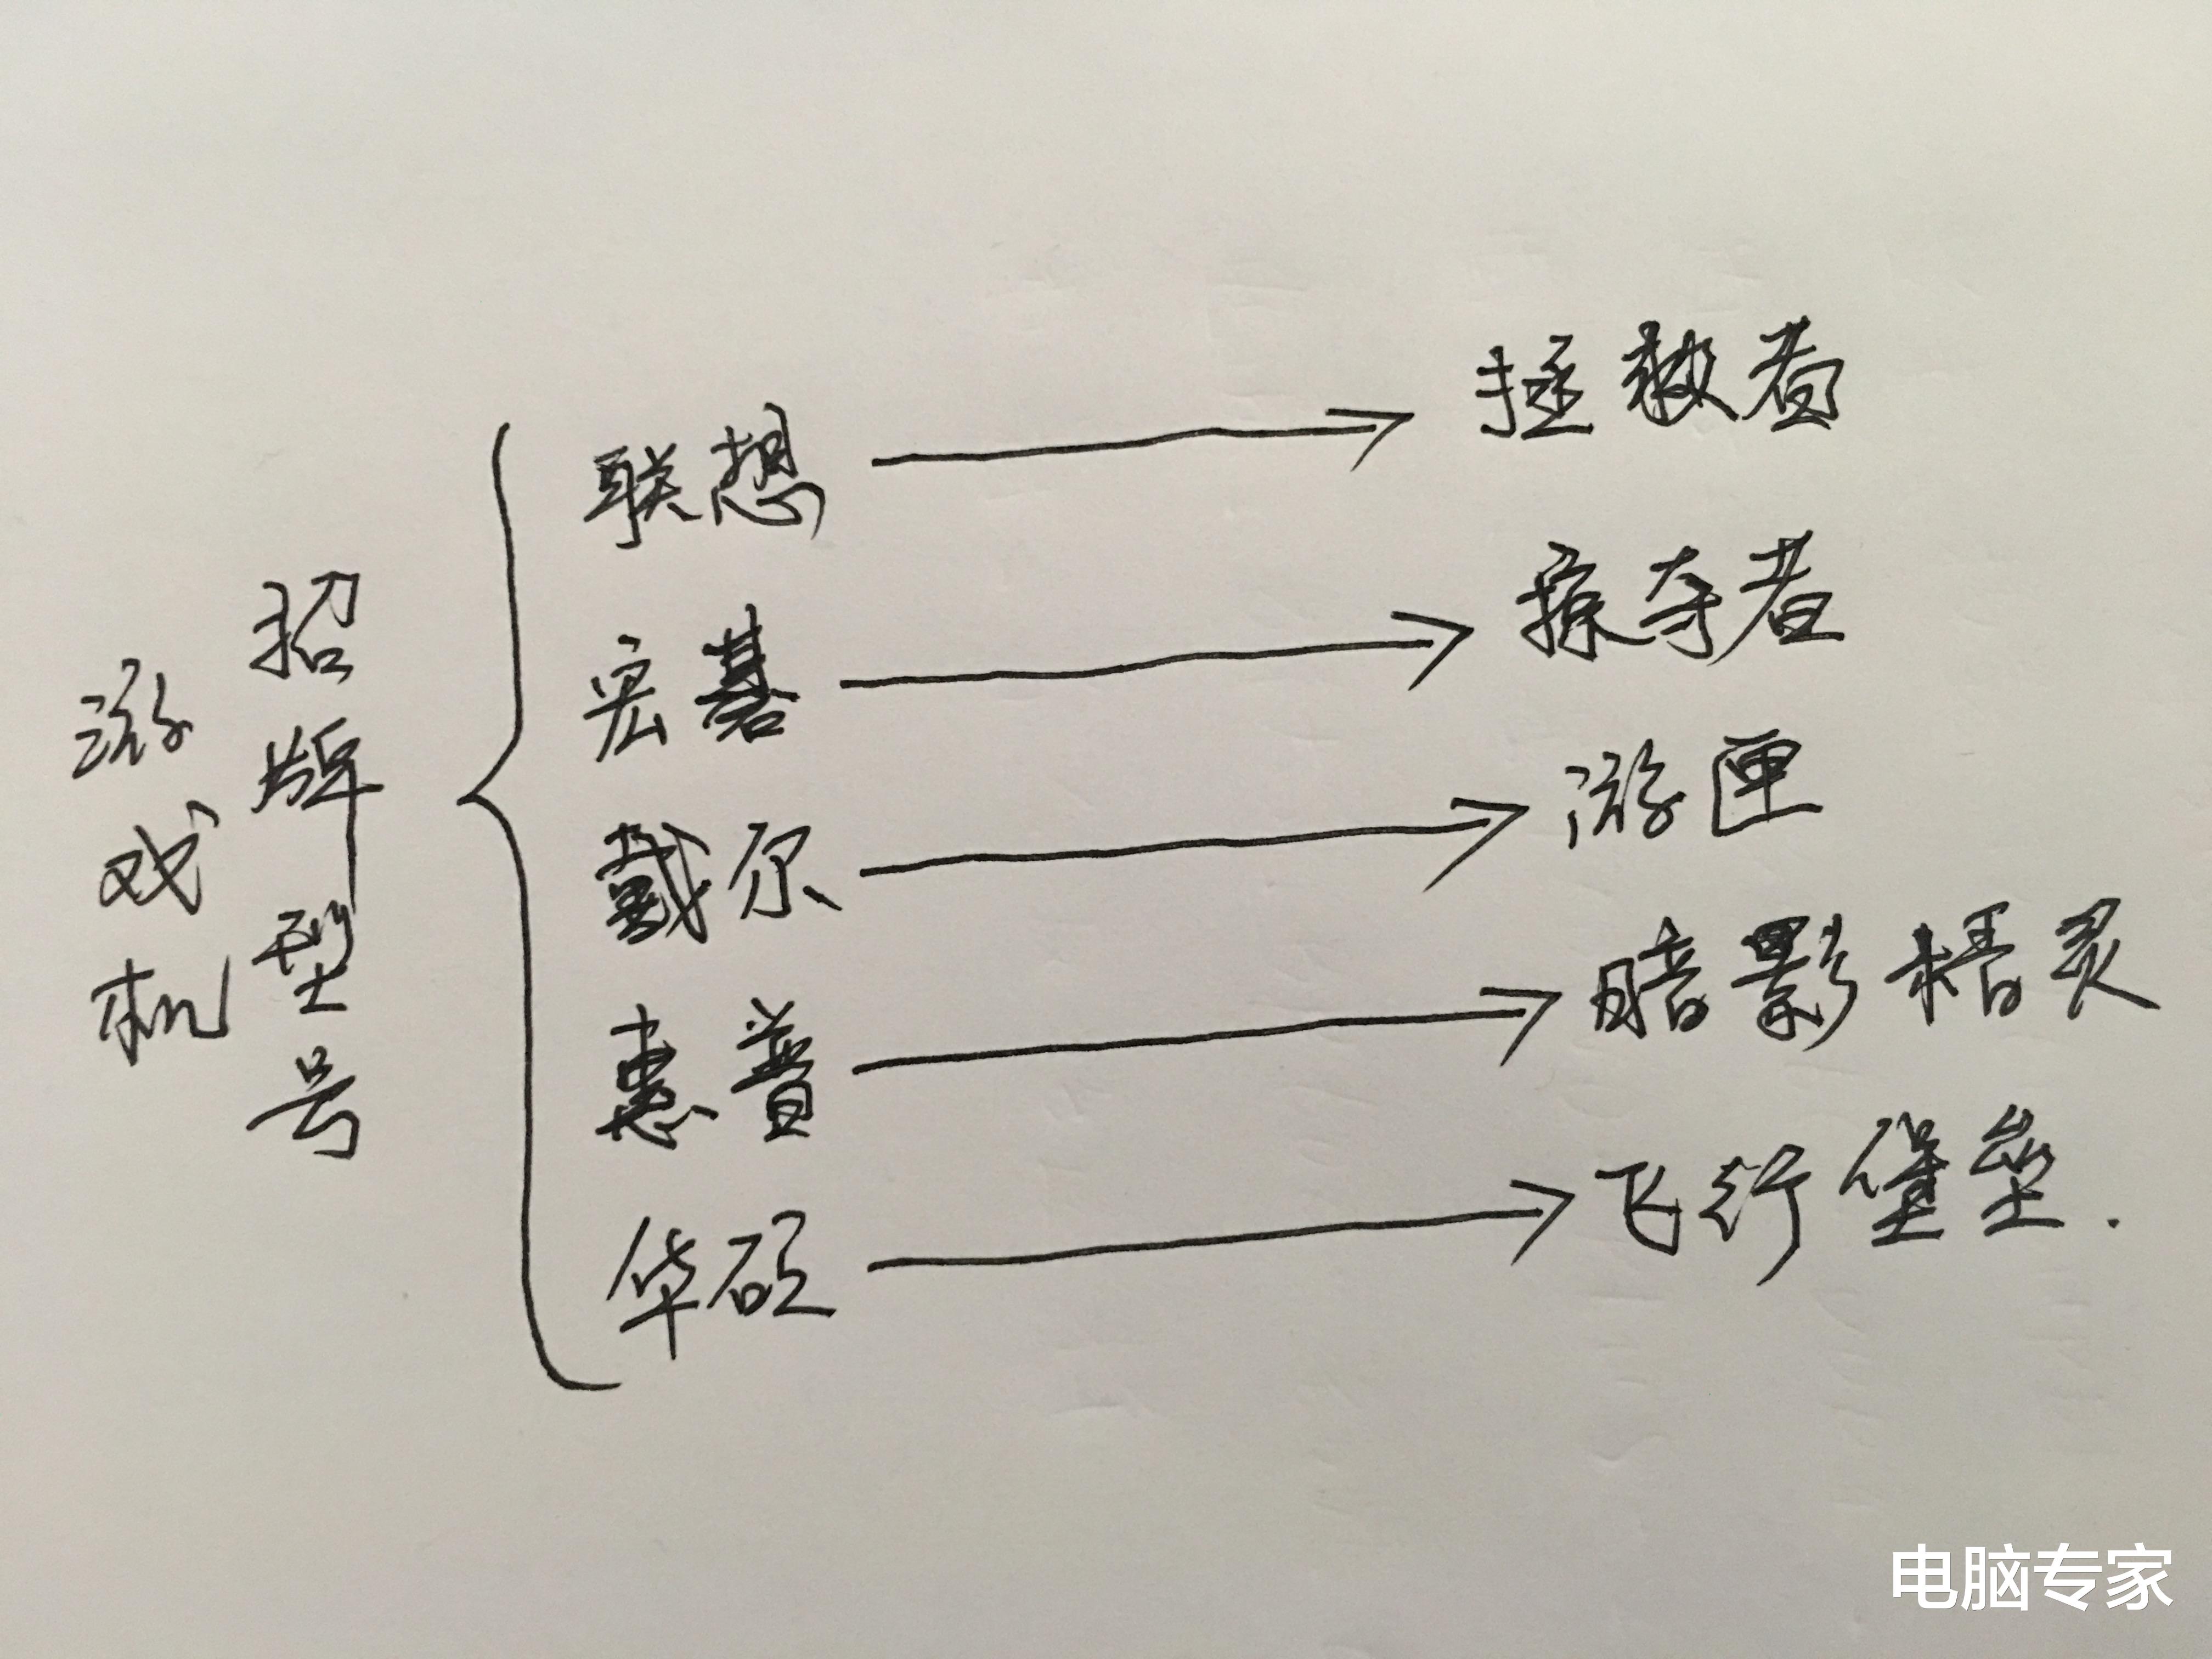 游戏机
招牌型号
联想 → 拯救者
宏碁 → 掠夺者
戴尔 → 游匣
惠普 → 暗影精灵
华硕 → 飞行堡垒.
电脑专家